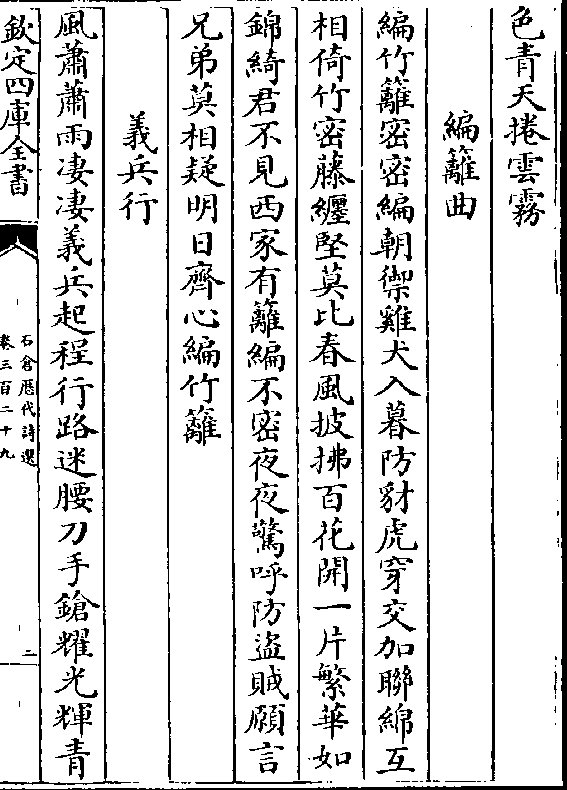 色青天捲雲霧
編籬曲
編竹籬密密編朝禦雞犬入暮防豺虎穿交加聯綿互
相倚竹密藤纏堅莫比春風披拂百花開一片繁華如
錦綺君不見西家有籬編不密夜夜驚呼防盜賊願言
兄弟莫相疑明日齊心編竹籬
義兵行
風蕭蕭雨凄凄義兵起程行路迷腰刀手鎗耀光輝青
欽定四庫全書
石倉歷代詩選
卷三百二十九
二